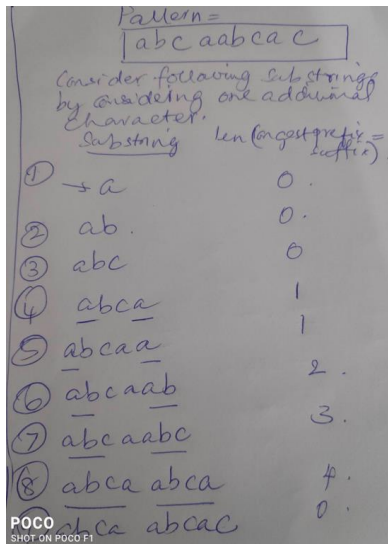 Pattern =
abc aabca c
Consider following substrings
by considering one additional
character.
Substring len (longest prefix =
suffix)
① → a 0.
② ab. 0.
③ abc 0
④ abca 1
⑤ abcaa 1
⑥ abcaab 2.
⑦ abc aabc 3.
⑧ abca abca 4.
abca abcac 0.
POCO
SHOT ON POCO F1